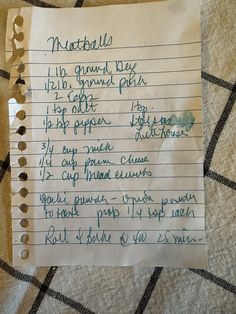 Meatballs
1 lb. ground Beef
1/2 lb. ground pork
2 eggs
1 tsp salt 1 tsp.
1/2 tsp pepper
3/4 cup milk
1/4 cup parm cheese
1/2 cup bread crumbs
Garlic powder - onion powder
to taste prob 1/4 tsp each
Roll & Bake @ 400 25 min.